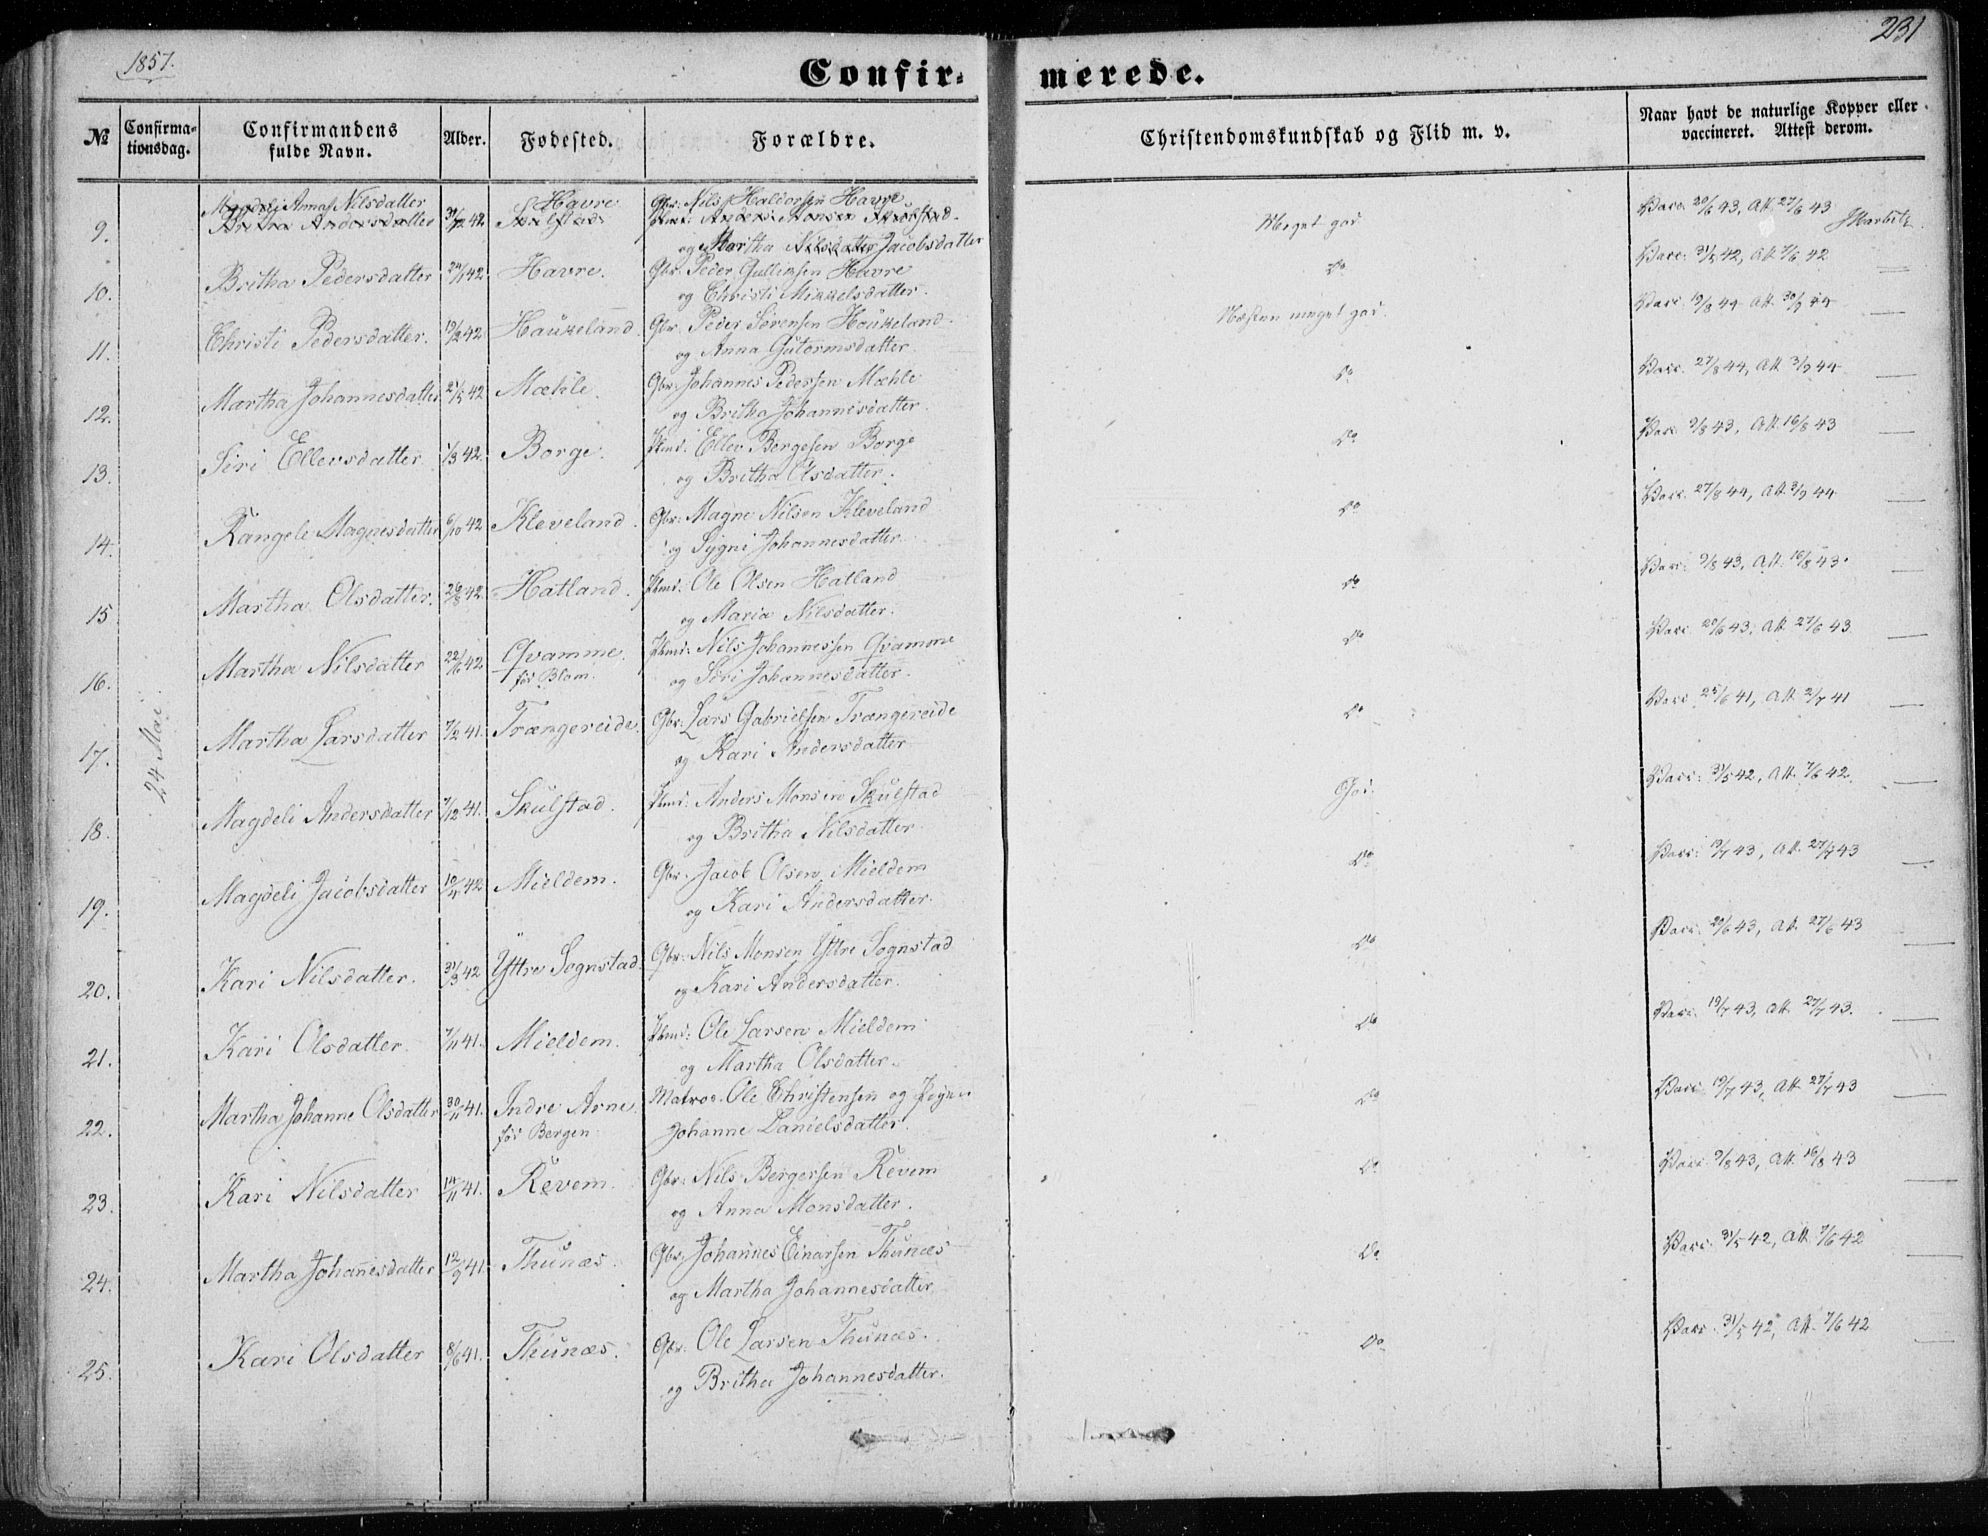 1857.
231
Confirmerede.
№ Confirmationsdag. Confirmandens fulde Navn. Alder. Fødested. Forældre. Christendomskundskab og Flid m. v. Naar havt de naturlige Kopper eller vaccineret. Attest derom.
24 Mai.
Anna Nilsdatter Havre Gbr: Nils Haldorsen Havre
9. Britha Andersdatter 42 Skulstad Anders Monsen Skulstad Meget god Vacc. 20/6 43, Att. 27/6 43
og Martha Nilsdatter Jacobsdatter
10. Britha Pedersdatter 42 Havre. Gbr: Peder Guttimsen Havre Do Vacc: 31/5 42, Att 7/6 42
og Christi Mikkelsdatter.
11. Christi Pedersdatter. 19/2 42 Haukeland. Gbr. Peder Sørensen Haukeland. Næsten meget god. Vacc 19/8 44 Att. 30/9 44
og Anna Gutormsdatter.
12. Martha Johannesdatter 21/5 42 Mæhle. Gbr: Johannes Pedersen Mæhle Do Vacc. 27/8 44, Att 3/9 44
og Britha Johannisdatter.
13. Siri Ellevsdatter 1/3 42 Borge. Pkmd: Ellev Borgesen Borge Do Vacc 9/8 43, Att. 16/8 43
og Britha Olsdatter.
14. Rangele Magnesdatter 6/10 42 Kleveland. Gbr: Magne Nilsen Kleveland Do Vacc. 27/8 44, Att 3/9 44
og Sygni Johannesdatter
15 Martha Olsdatter. 26/8 42 Hatland. Pkmd: Ole Olsen Hatland Do Vacc: 9/8 43, Att. 16/8 43.
og Maria Nilsdatter.
16. Martha Nilsdatter 22/6 42 Qvamme. Pkmd: Nils Johannessen Qvamme Do Vacc. 20/6 43, Att 27/6 43
før Blom. og Siri Johannesdatter.
17. Martha Larsdatter 7/2 41. Trængereide. Gbr: Lars Gabrielsen Trængereide Do Vacc 25/6 41, Att 2/7 41
og Kari Andersdatter
18. Magdeli Andersdatter 7/12 41. Skulstad. Pkmd: Anders Monsen Skulstad God. Vacc: 31/5 42, Att. 7/6 42.
og Britha Nilsdatter
19. Magdeli Jacobsdatter 42 Mieldem. Gbr. Jacob Olsen Mieldem Do Vacc: 19/7 43, Att. 27/7 43
og Kari Andersdatter.
20. Kari Nilsdatter. 31/3 42 Yttre Sognstad. Gbr: Nils Monsen Yttre Sognstad Do Vacc. 20/6 43, Att. 27/6 43
og Kari Andersdatter.
21. Kari Olsdatter. 7/11 41. Mieldem. Pkmd: Ole Larsen Mieldem Do Vacc. 19/7 43, Att. 27/7 43.
og Martha Olsdatter.
22. Martha Johanne Olsdatter 30/11 41. Indre Arne. Matros. Ole Christensen og Pigen Do Vacc 19/7 43, Att. 27/7 43
før Bergen Johanne Danielsdatter.
23. Kari Nilsdatter 14/11 41. Revem. Gbr: Nils Bergersen Revem Do Vacc. 9/8 43, Att. 16/8 43
og Anna Monsdatter.
24. Martha Johannesdatter 12/9 41. Thunæs. Gbr. Johannes Einarsen Thunæs Do Vacc. 31/5 42, Att. 7/6 42
og Martha Johannesdatter
25. Kari Olsdatter 8/6 41. Thunæs. Gbr: Ole Larsen Thunæs. Do Vacc. 31/5 42, Att. 7/6 42
og Britha Johannesdatter.